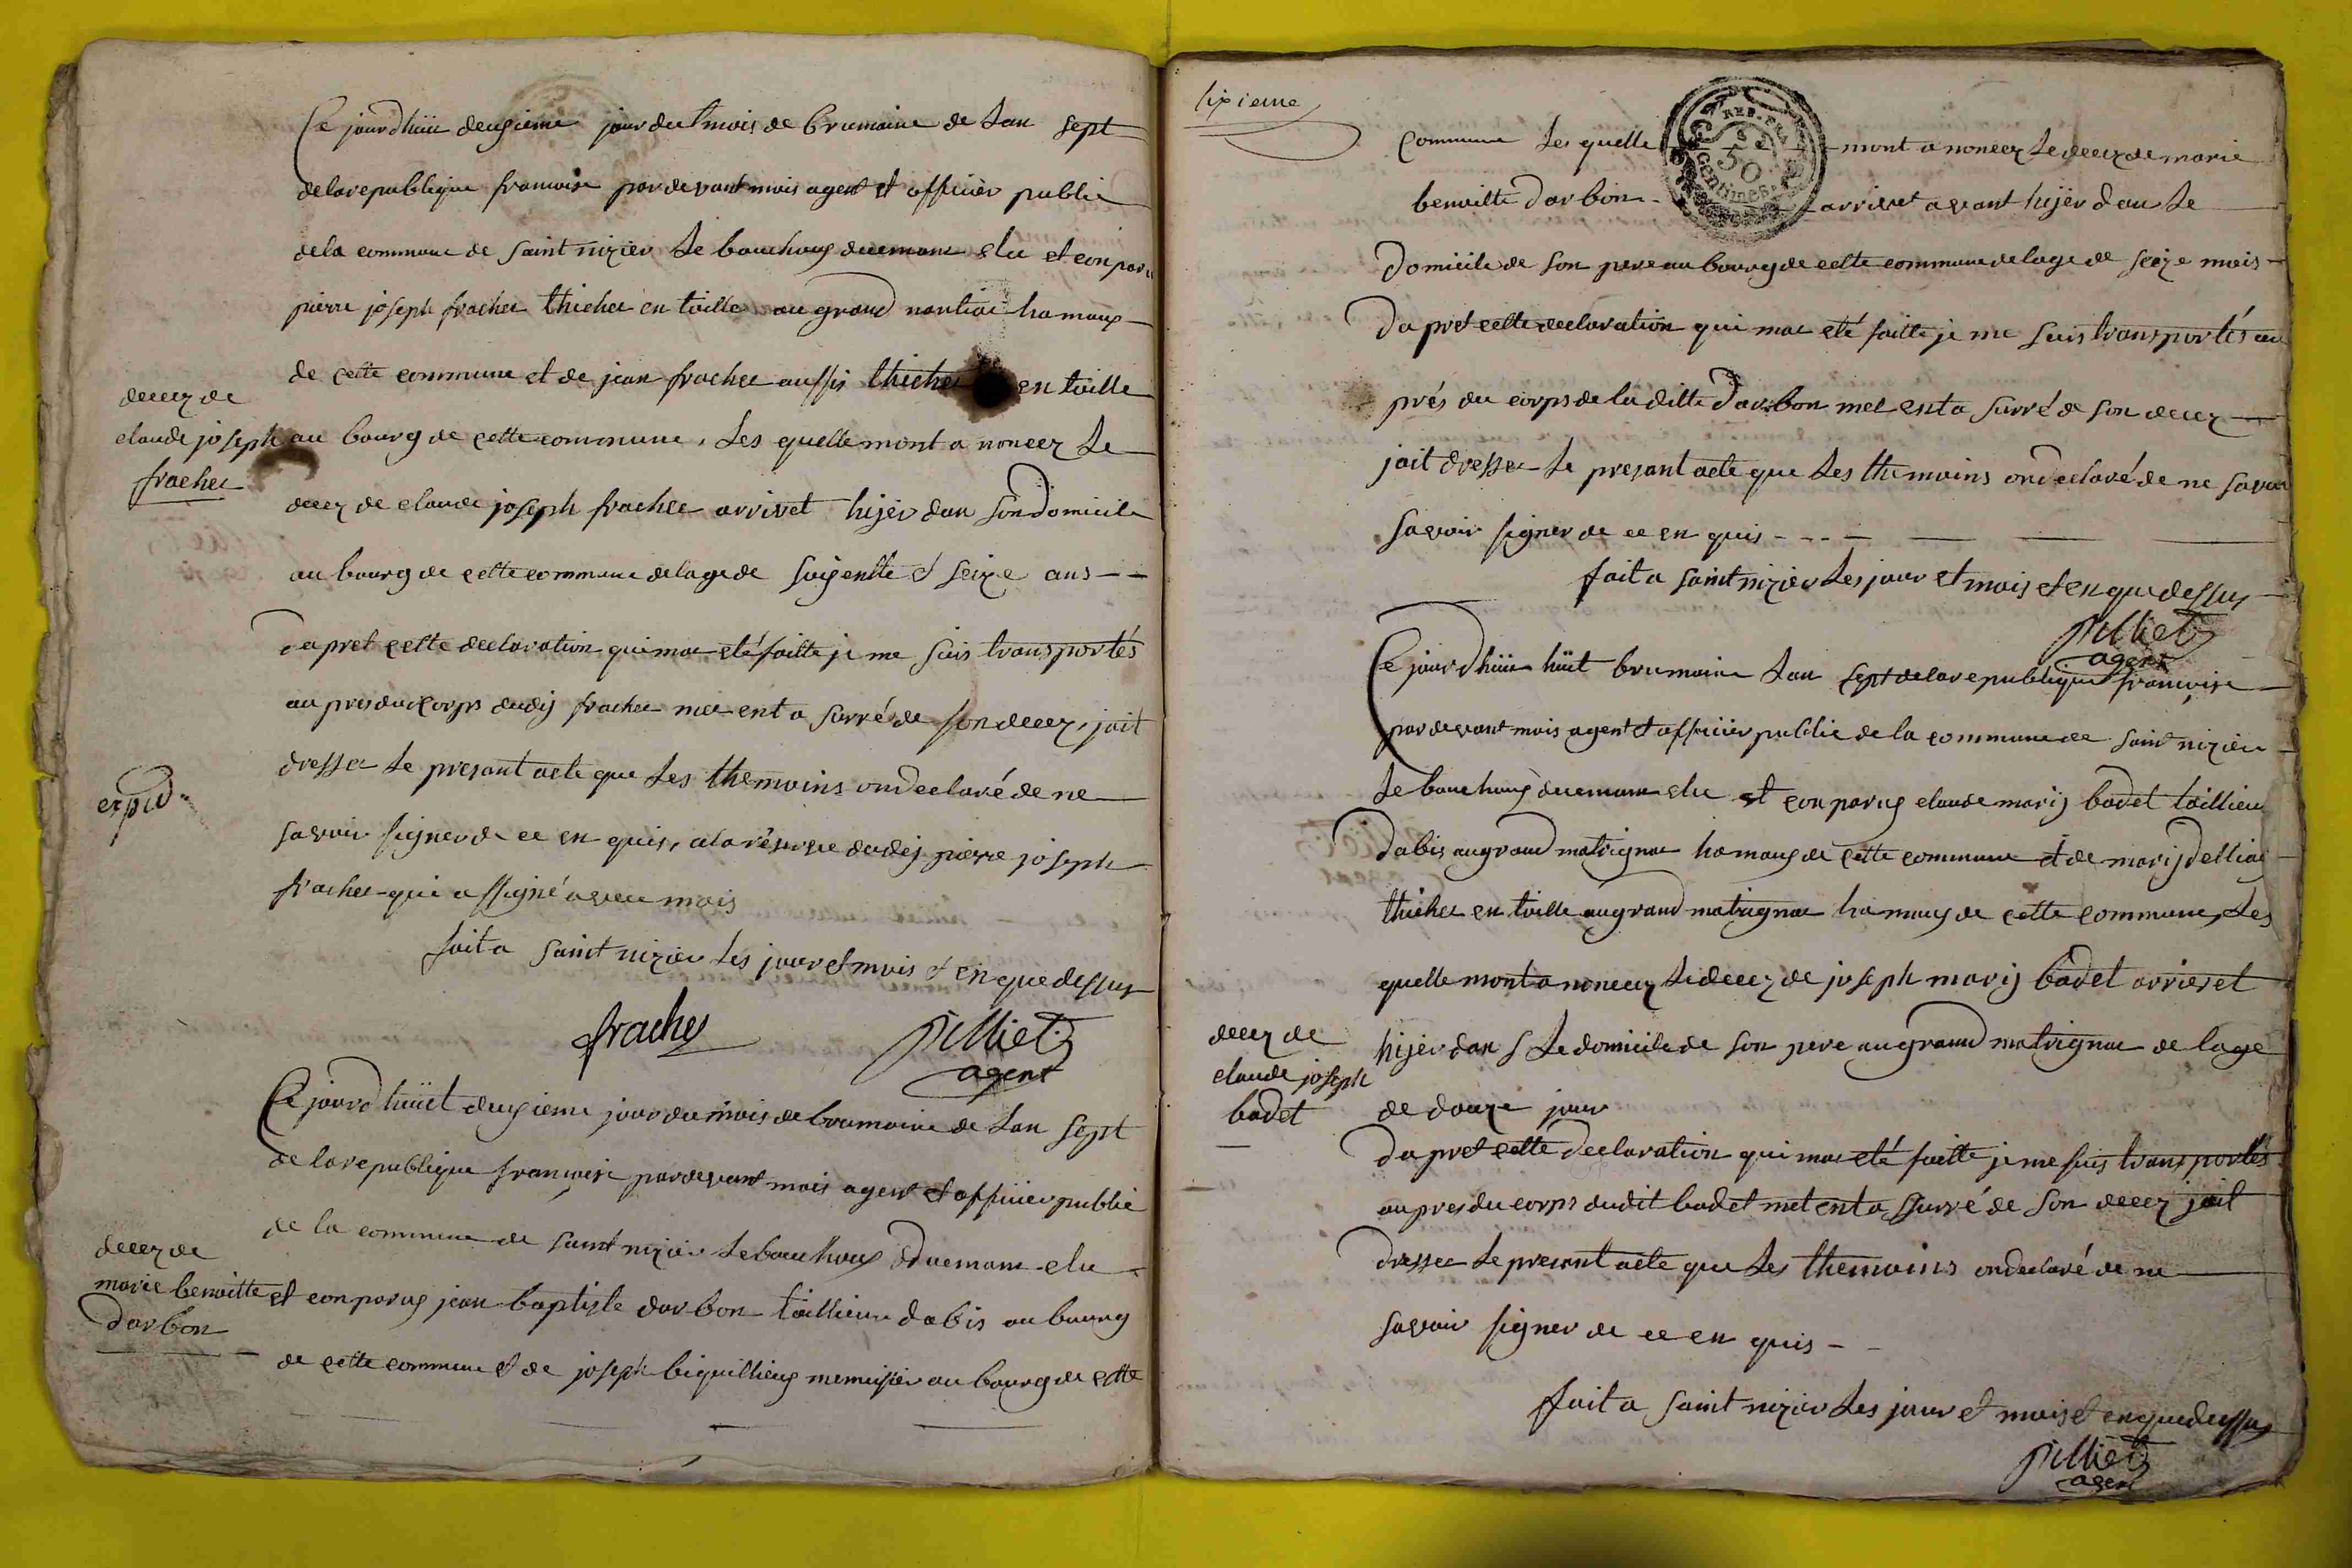 Ce jourdhüi deuxieme jour du mois de brumaire de Lan sept
de la republique francoise par devant mois agent et officièr public
de la commune de saint nizier Le bouchoux duemant elu et conparu
pierre joseph frachet thicher en toille au grand hamaux
de cette commune et de jean frachet aussis thicher en toille
au bourg de cette commune, Les quelle mont anoncez Le
decez de claude joseph frachet arrivet hijer dan son Domicile
au bourg de cette commune de lage de soixentte et seize ans
Dapret cette declaration qui mat eté faitte je me suis transportés
au pres du corps dudij frachet met ent asurré de son decez, jait
dresser Le presant acte que Les themoins on declaré de ne
savoir signer de ce en quis, a la reserve dudij pierre joseph
frachet qui a ssigné avec mois
fait a saint nizier Les jour et mois et en que dessus
frachet pilliet
agent
decez de
claude joseph
frachet
expid
Ce jourdhüit deuxieme jour du mois de brumaire de Lan sept
de la republique francoise par devant mois agent et officier public
de la commune de saint nizier Le bouchoux duemant elu
et conparus jean baptiste darbon taillieur dabis au bourg
de cette commune et de joseph biquillieux menuisier au bourg de cette
decez de
marie benoitte
Darbon
sixieme
commune Les quelle mont anoncez Le decez de marie
benoitte Darbon arrivet avant hijèr dan Le
REP. FRA.
50
centimes
Domicile de son pere au bourg de cette commune de lage de seize mois
Dapret cette declaration qui mat eté faitte je me suis transportés au
prés du corps de la ditte Darbon met ent asurré de son decez
jait dresser Le presant acte que Les themoins on declaré de ne savoir
savoir signer de ce en quis
fait a saint nizier Les jour et mois et en que dessus
pilliet
agent
Ce jourdhüit hüit brumaire Lan sept de la republique francoise
par devant mois agent et officièr public de la commune de saint nizier
Le bouchoux duemant elu et conparus claude marij badet taillieur
Dabis au grand matrignat hamaux de cette commune et de marij
thicher en toille au grand matrignat hamaux de cette commune, Les
quelle mont anoncez Le decez de joseph marij badet arrivet
hijèr dan s Le domicile de son pere au grand matrignat de lage
de douze jour
decez de
claude joseph
badet
Dapret cette declaration qui mat eté faitte je me suis transportés
au pres du corps dudit badet met ent assurré de son decez jait
dresser Le presant acte que Les themoins on declaré de ne
savoir signer de ce en quis
fait a saint nizier Les jour et mois et en que dessus
pilliet
agent